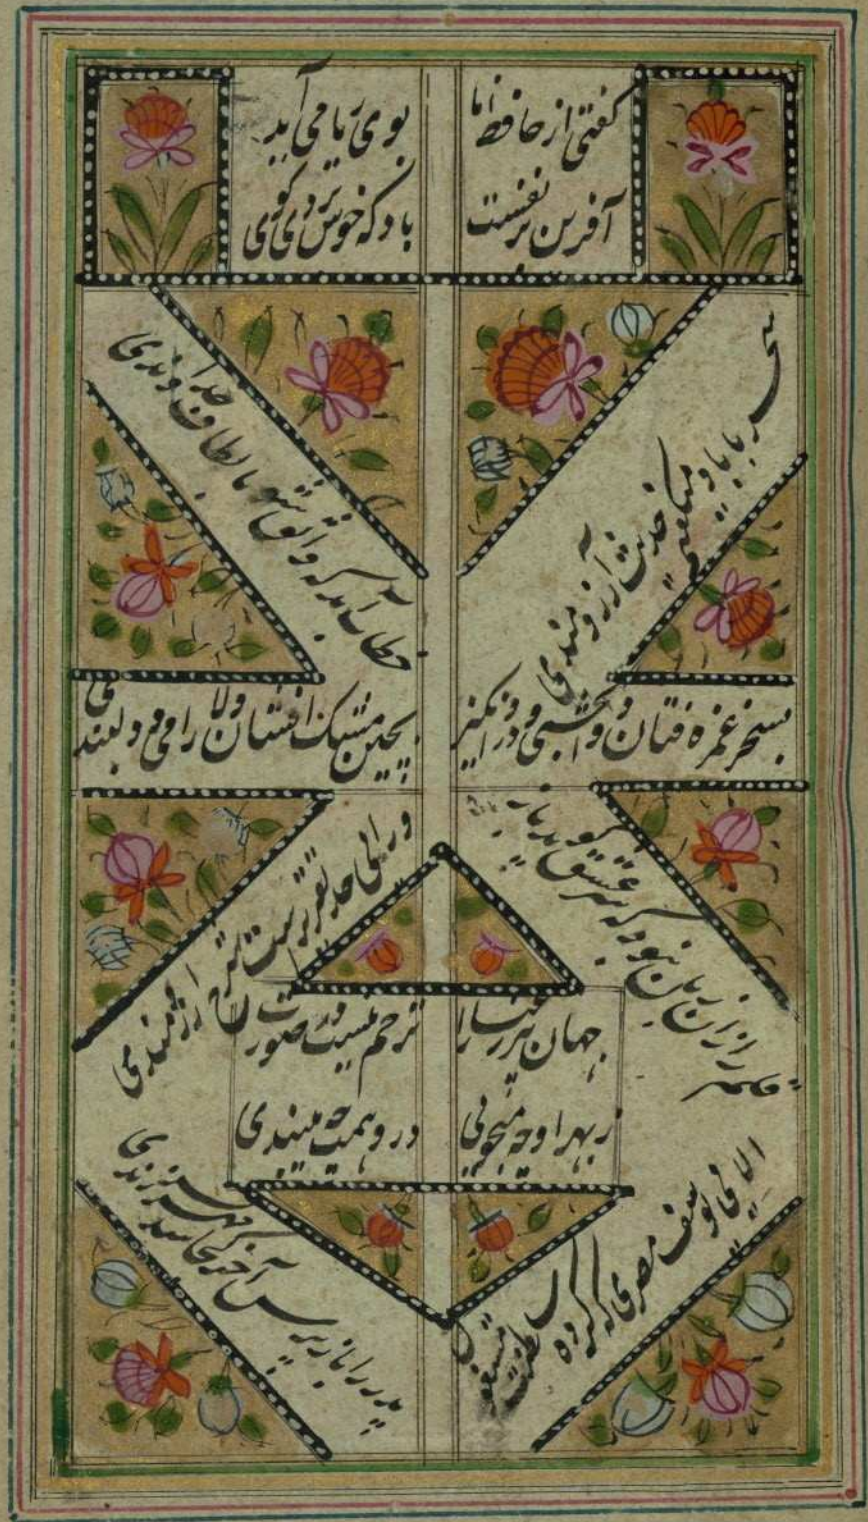 گفتی از حافظ ما
بوی ریا می آید
آفرین بر نفست
باد که خوش بردی بوی
سحر با باد میگفتم حدیث آرزومندی
خطاب آمد که واثق شو بالطاف خداوندی
بسحر غمزه فتان دوا بخشی و درد انگیز
بچین زلف مشک افشان دلا رامی و دلبندی
قلم را آن زبان نبود که سر عشق گوید باز
ورای حد تقریرست شرح آرزومندی
جهان پیر رعنا را
ترحم نیست در صورت
ز بهر او چه میجویی
درو همت چه میبندی
الا ای یوسف مصری که کردت سلطنت مشغول
پدر را باز پرس آخر کجا شد مهر فرزندی